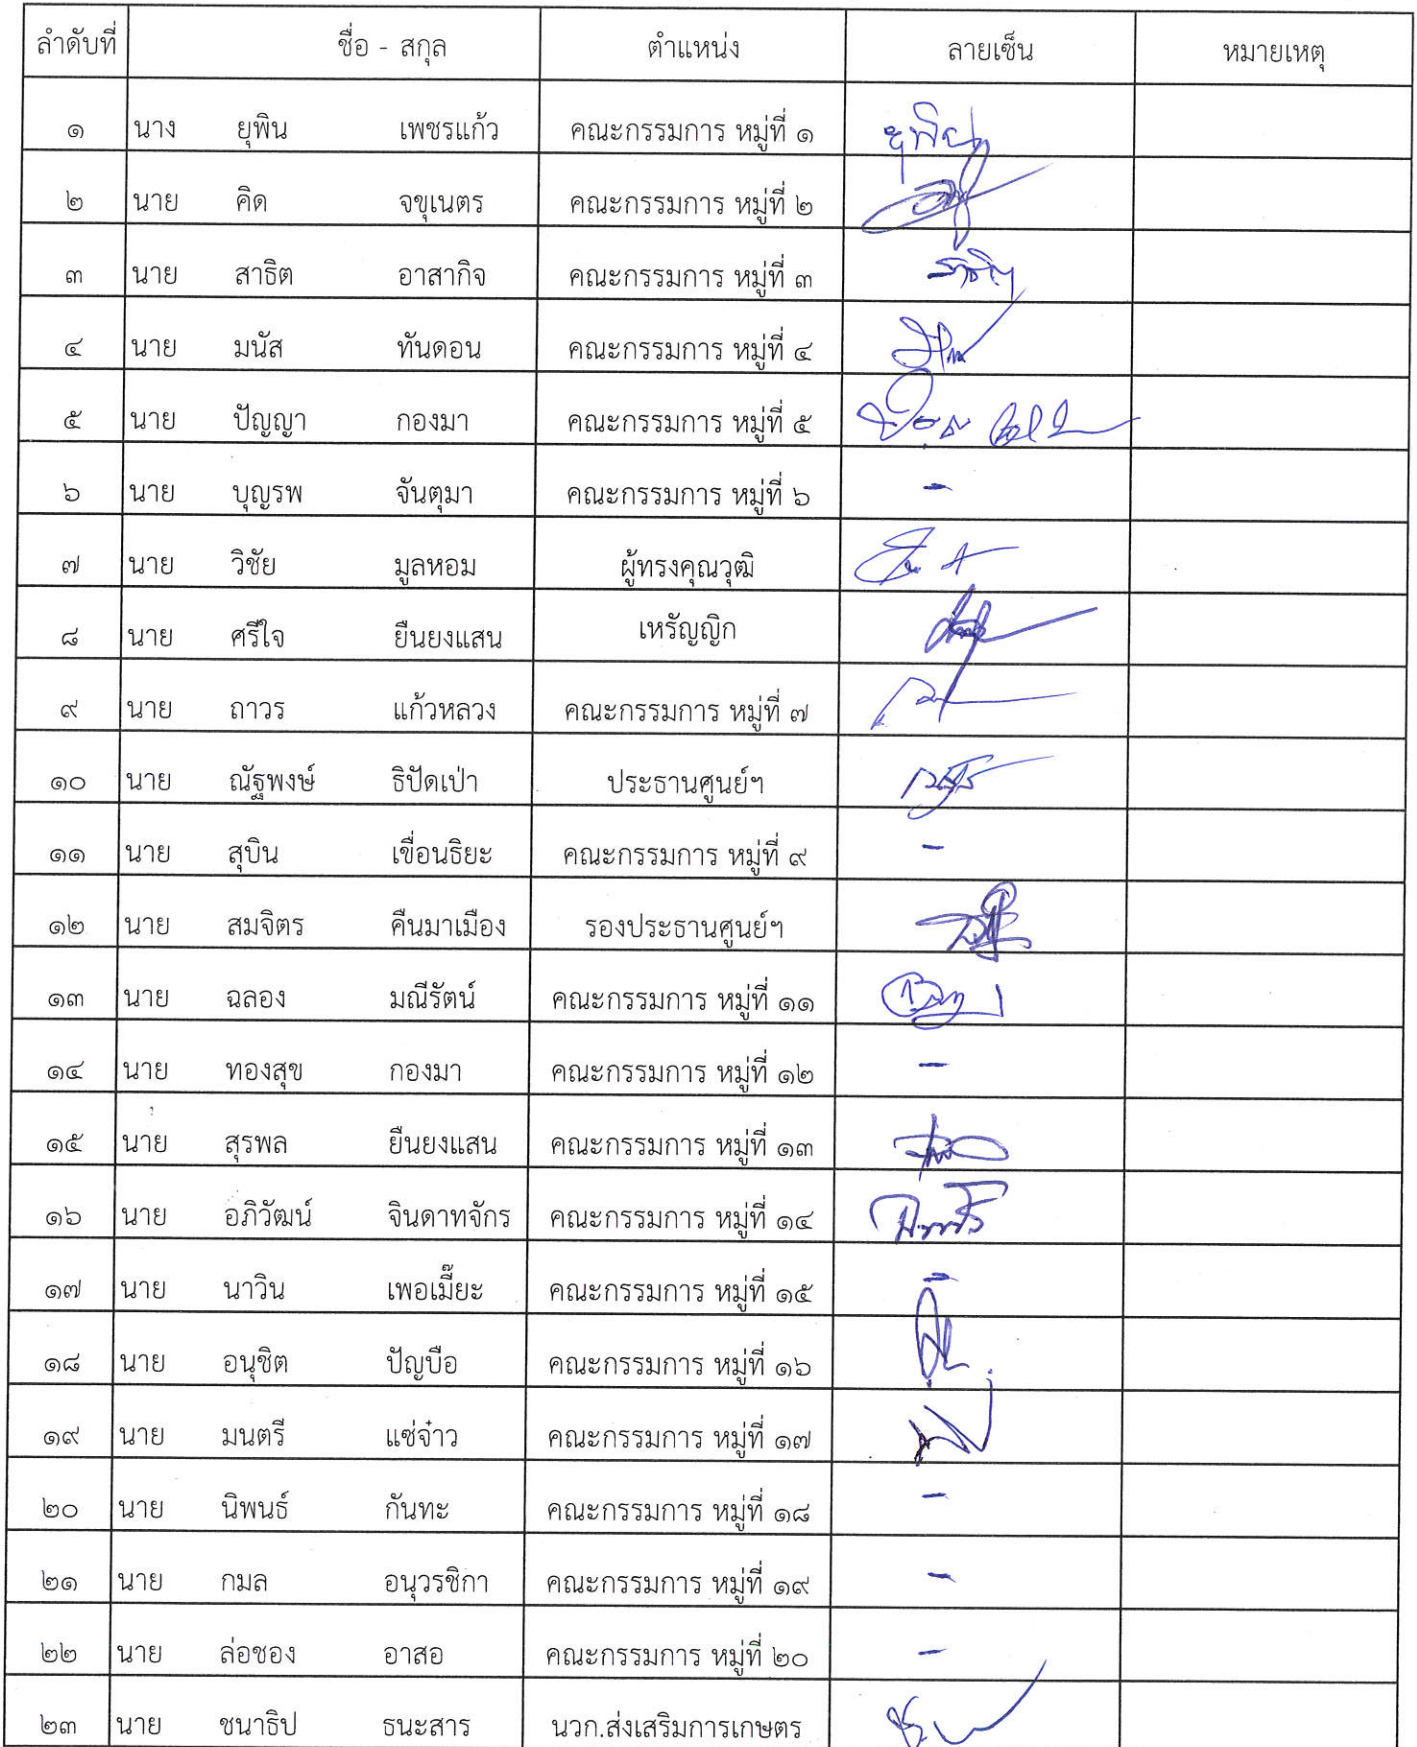 ลำดับที่ ชื่อ - สกุล ตำแหน่ง ลายเซ็น หมายเหตุ
๑ นาง ยุพิน เพชรแก้ว คณะกรรมการ หมู่ที่ ๑ ยุพิน
๒ นาย คิด จขุเนตร คณะกรรมการ หมู่ที่ ๒
๓ นาย สาธิต อาสากิจ คณะกรรมการ หมู่ที่ ๓
๔ นาย มนัส ทันดอน คณะกรรมการ หมู่ที่ ๔
๕ นาย ปัญญา กองมา คณะกรรมการ หมู่ที่ ๕
๖ นาย บุญรพ จันตุมา คณะกรรมการ หมู่ที่ ๖ -
๗ นาย วิชัย มูลหอม ผู้ทรงคุณวุฒิ
๘ นาย ศรีใจ ยืนยงแสน เหรัญญิก
๙ นาย ถาวร แก้วหลวง คณะกรรมการ หมู่ที่ ๗
๑๐ นาย ณัฐพงษ์ ธิปัดเป่า ประธานศูนย์ฯ
๑๑ นาย สุบิน เขื่อนธิยะ คณะกรรมการ หมู่ที่ ๙ -
๑๒ นาย สมจิตร คืนมาเมือง รองประธานศูนย์ฯ
๑๓ นาย ฉลอง มณีรัตน์ คณะกรรมการ หมู่ที่ ๑๑
๑๔ นาย ทองสุข กองมา คณะกรรมการ หมู่ที่ ๑๒ -
๑๕ นาย สุรพล ยืนยงแสน คณะกรรมการ หมู่ที่ ๑๓
๑๖ นาย อภิวัฒน์ จินดาทจักร คณะกรรมการ หมู่ที่ ๑๔
๑๗ นาย นาวิน เพอเมี๊ยะ คณะกรรมการ หมู่ที่ ๑๕ -
๑๘ นาย อนุชิต ปัญบือ คณะกรรมการ หมู่ที่ ๑๖
๑๙ นาย มนตรี แซ่จ๋าว คณะกรรมการ หมู่ที่ ๑๗
๒๐ นาย นิพนธ์ กันทะ คณะกรรมการ หมู่ที่ ๑๘ -
๒๑ นาย กมล อนุวรชิกา คณะกรรมการ หมู่ที่ ๑๙ -
๒๒ นาย ล่อซอง อาสอ คณะกรรมการ หมู่ที่ ๒๐ -
๒๓ นาย ชนาธิป ธนะสาร นวก.ส่งเสริมการเกษตร